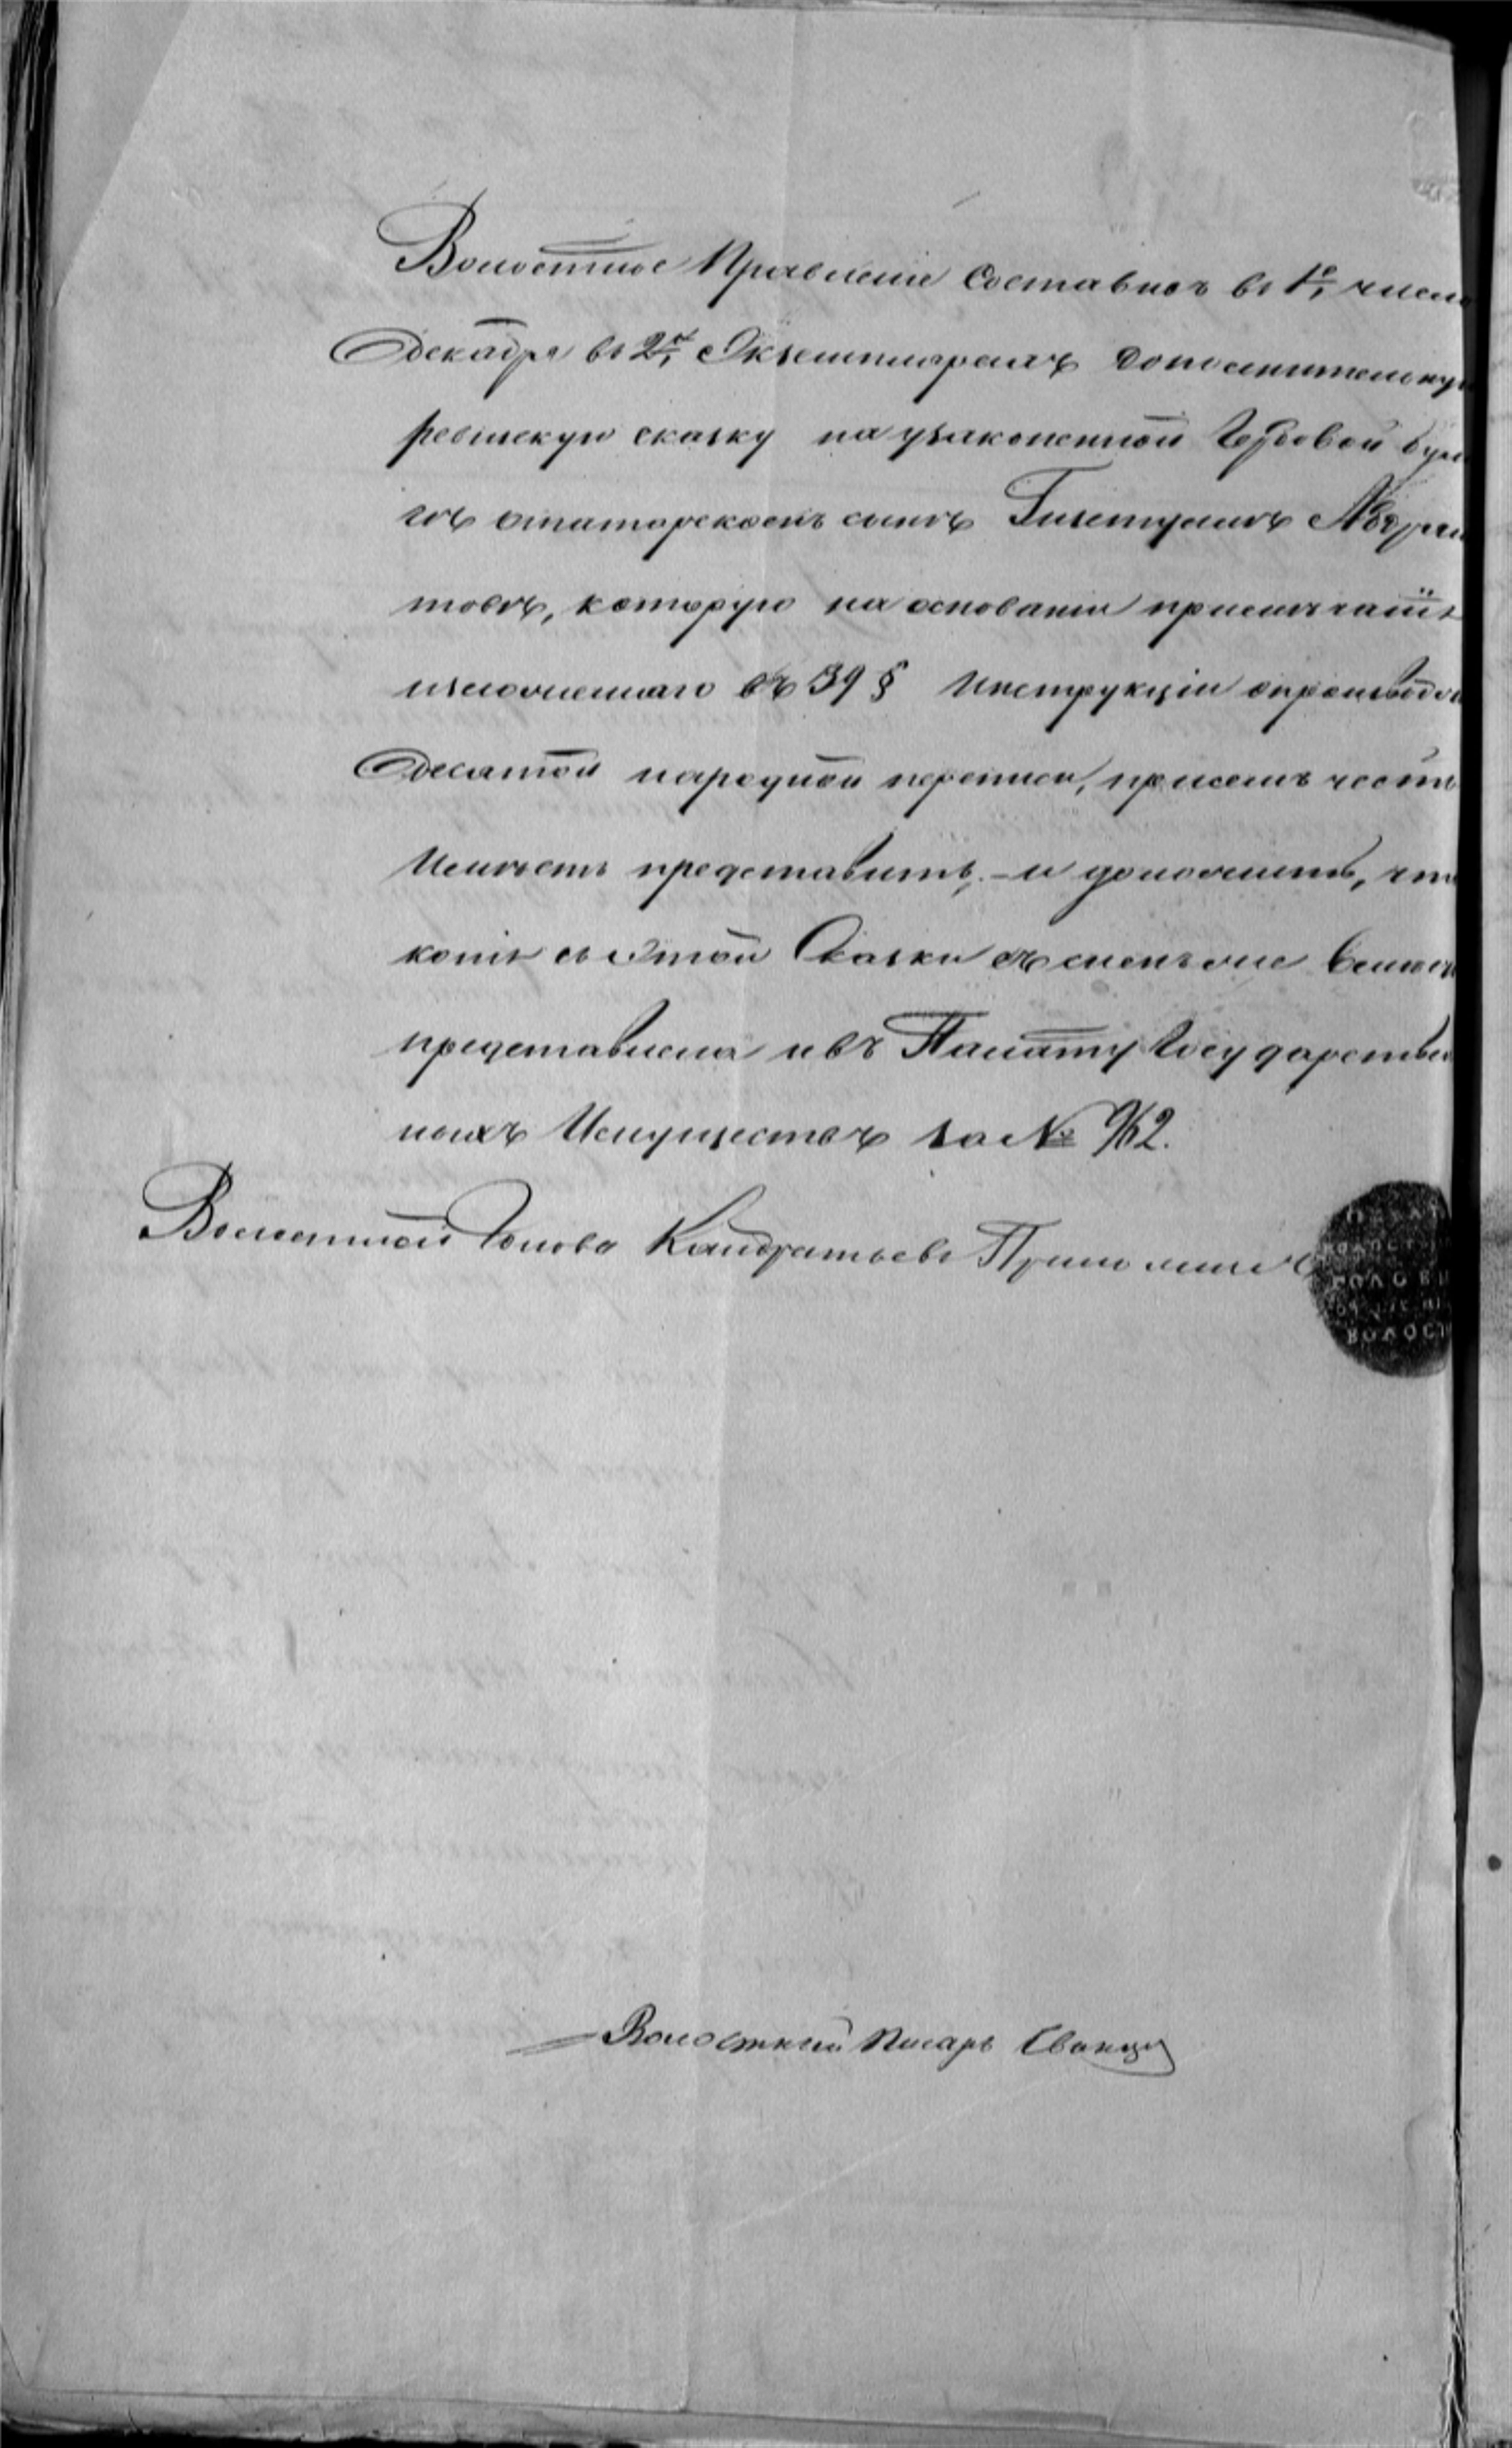 Волостное Правленіе Составивъ въ 1е, число
Декабря въ 2хъ, Экземплярахъ Дополнительную
ревизскую сказку на узаконенной Гербовой бума
гѣ о татарскомъ сынѣ
товѣ, которую на основаніи примѣчанія
изложеннаго въ 39 § Инструкціи о производствѣ
Десятой народной переписи, при семъ честь
Имѣетъ представить, – и доложить, что
копія съ этой Сказки съ симъ же вмѣстѣ
представлена и въ Палату Государствен
ныхъ Имуществъ за №
Волостной Голова Кандратьевъ
ПЕЧАТ
ВОЛОСТ
ГОЛОВЫ
ВОЛОСТ
Волостный Писарь